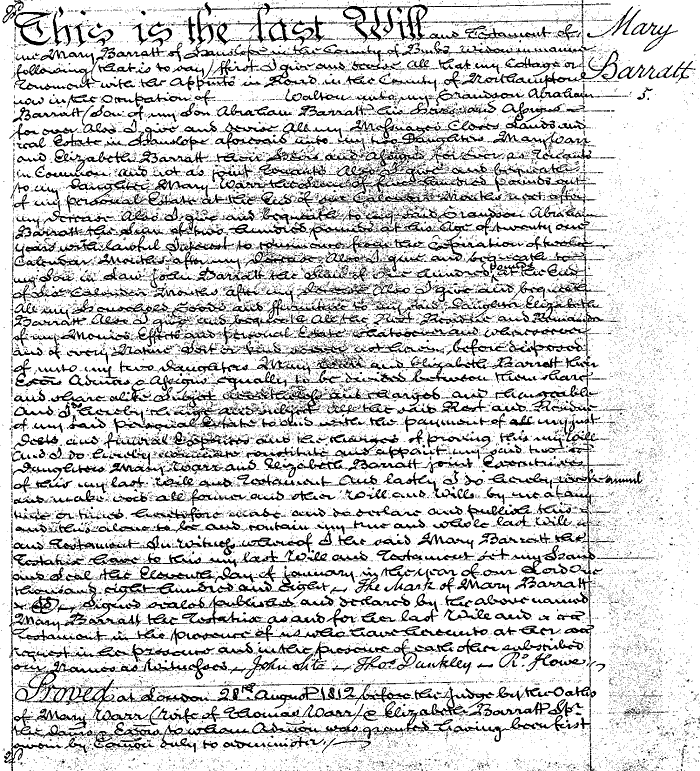 This is the last Will and Testament of
me Mary Barratt of Hanslope in the County of Bucks Widow in manner
following that is to say / ffirst I give and devise All that my Cottage or
Tenement with the Appurts in Road in the County of Northampton
now in the Occupation of Walton unto my Grandson Abraham
Barratt / Son of my Son Abraham Barratt his Heirs and Assigns
for ever Also I give and devise All my Messuages Closes Lands and
real Estate in Hanslope aforesaid unto my two Daughters Mary Warr
and Elizabeth Barratt their Heirs and Assigns for ever as Tenants
in Common and not as joint Tenants Also I give and bequeath
to my Daughter Mary Warr the Sum of five hundred pounds out
of my personal Estate at the End of six Calendar Months next after
my decease Also I give and bequeath to my said Grandson Abraham
Barratt the Sum of two hundred pounds at his Age of twenty one
years with lawful Interest to commence from the Expiration of twelve
Calendar Months after my decease Also I give and bequeath to
my Son in Law John Barratt the Sum of one hundred pounds at the End
of six Calendar Months after my decease Also I give and bequeath
All my Household Goods and ffurniture to my said Daughter Elizabeth
Barratt Also I give and bequeath All the Rest Residue and Remainder
of my Monies Effects and personal Estate whatsoever and wheresoever
and of every Nature Sort or kind soever not herein before disposed
of unto my two daughters Mary Warr and Elizabeth Barratt their
Exors Admors & Assigns equally to be divided between them share
and share alike Subject nevertheless and charged and chargeable
And I do hereby charge and subject All the said Rest and Residue
of my said personal Estate to and with the payment of all my just
Debts and funeral Expences and the charges of proving this my Will
And I do hereby nominate constitute and appoint my said two
Daughters Mary Warr and Elizabeth Barratt joint Executrixes
of this my last Will and Testament And lastly I do hereby revoke annul
and make void all former and other Will and Wills by me at any
time or times heretofore made and do declare and publish this
and this alone to be and contain my true and whole last Will
and Testament In Witness whereof I the said Mary Barratt the
Testatrix have to this my last Will and Testament set my Hand
and Seal the Eleventh day of january in the year of our Lord One
thousand eight hundred and Eight The Mark of Mary Barratt
Signed sealed published and declared by the above named
Mary Barratt the Testatrix as and for her last Will and
Testament in the presence of us who have hereunto at her
request in her presence and in the presence of each other subscribed
our Names as Witnesses John Thos Dunkley Rd Howe
Proved at London 28th August 1812 before the Judge by the Oaths
of Mary Warr (wife of Thomas Warr) & Elizabeth Barratt Spr
the Exors to whom Admon was granted having been first
sworn by Comon duly to administer
Mary
Barratt
5.